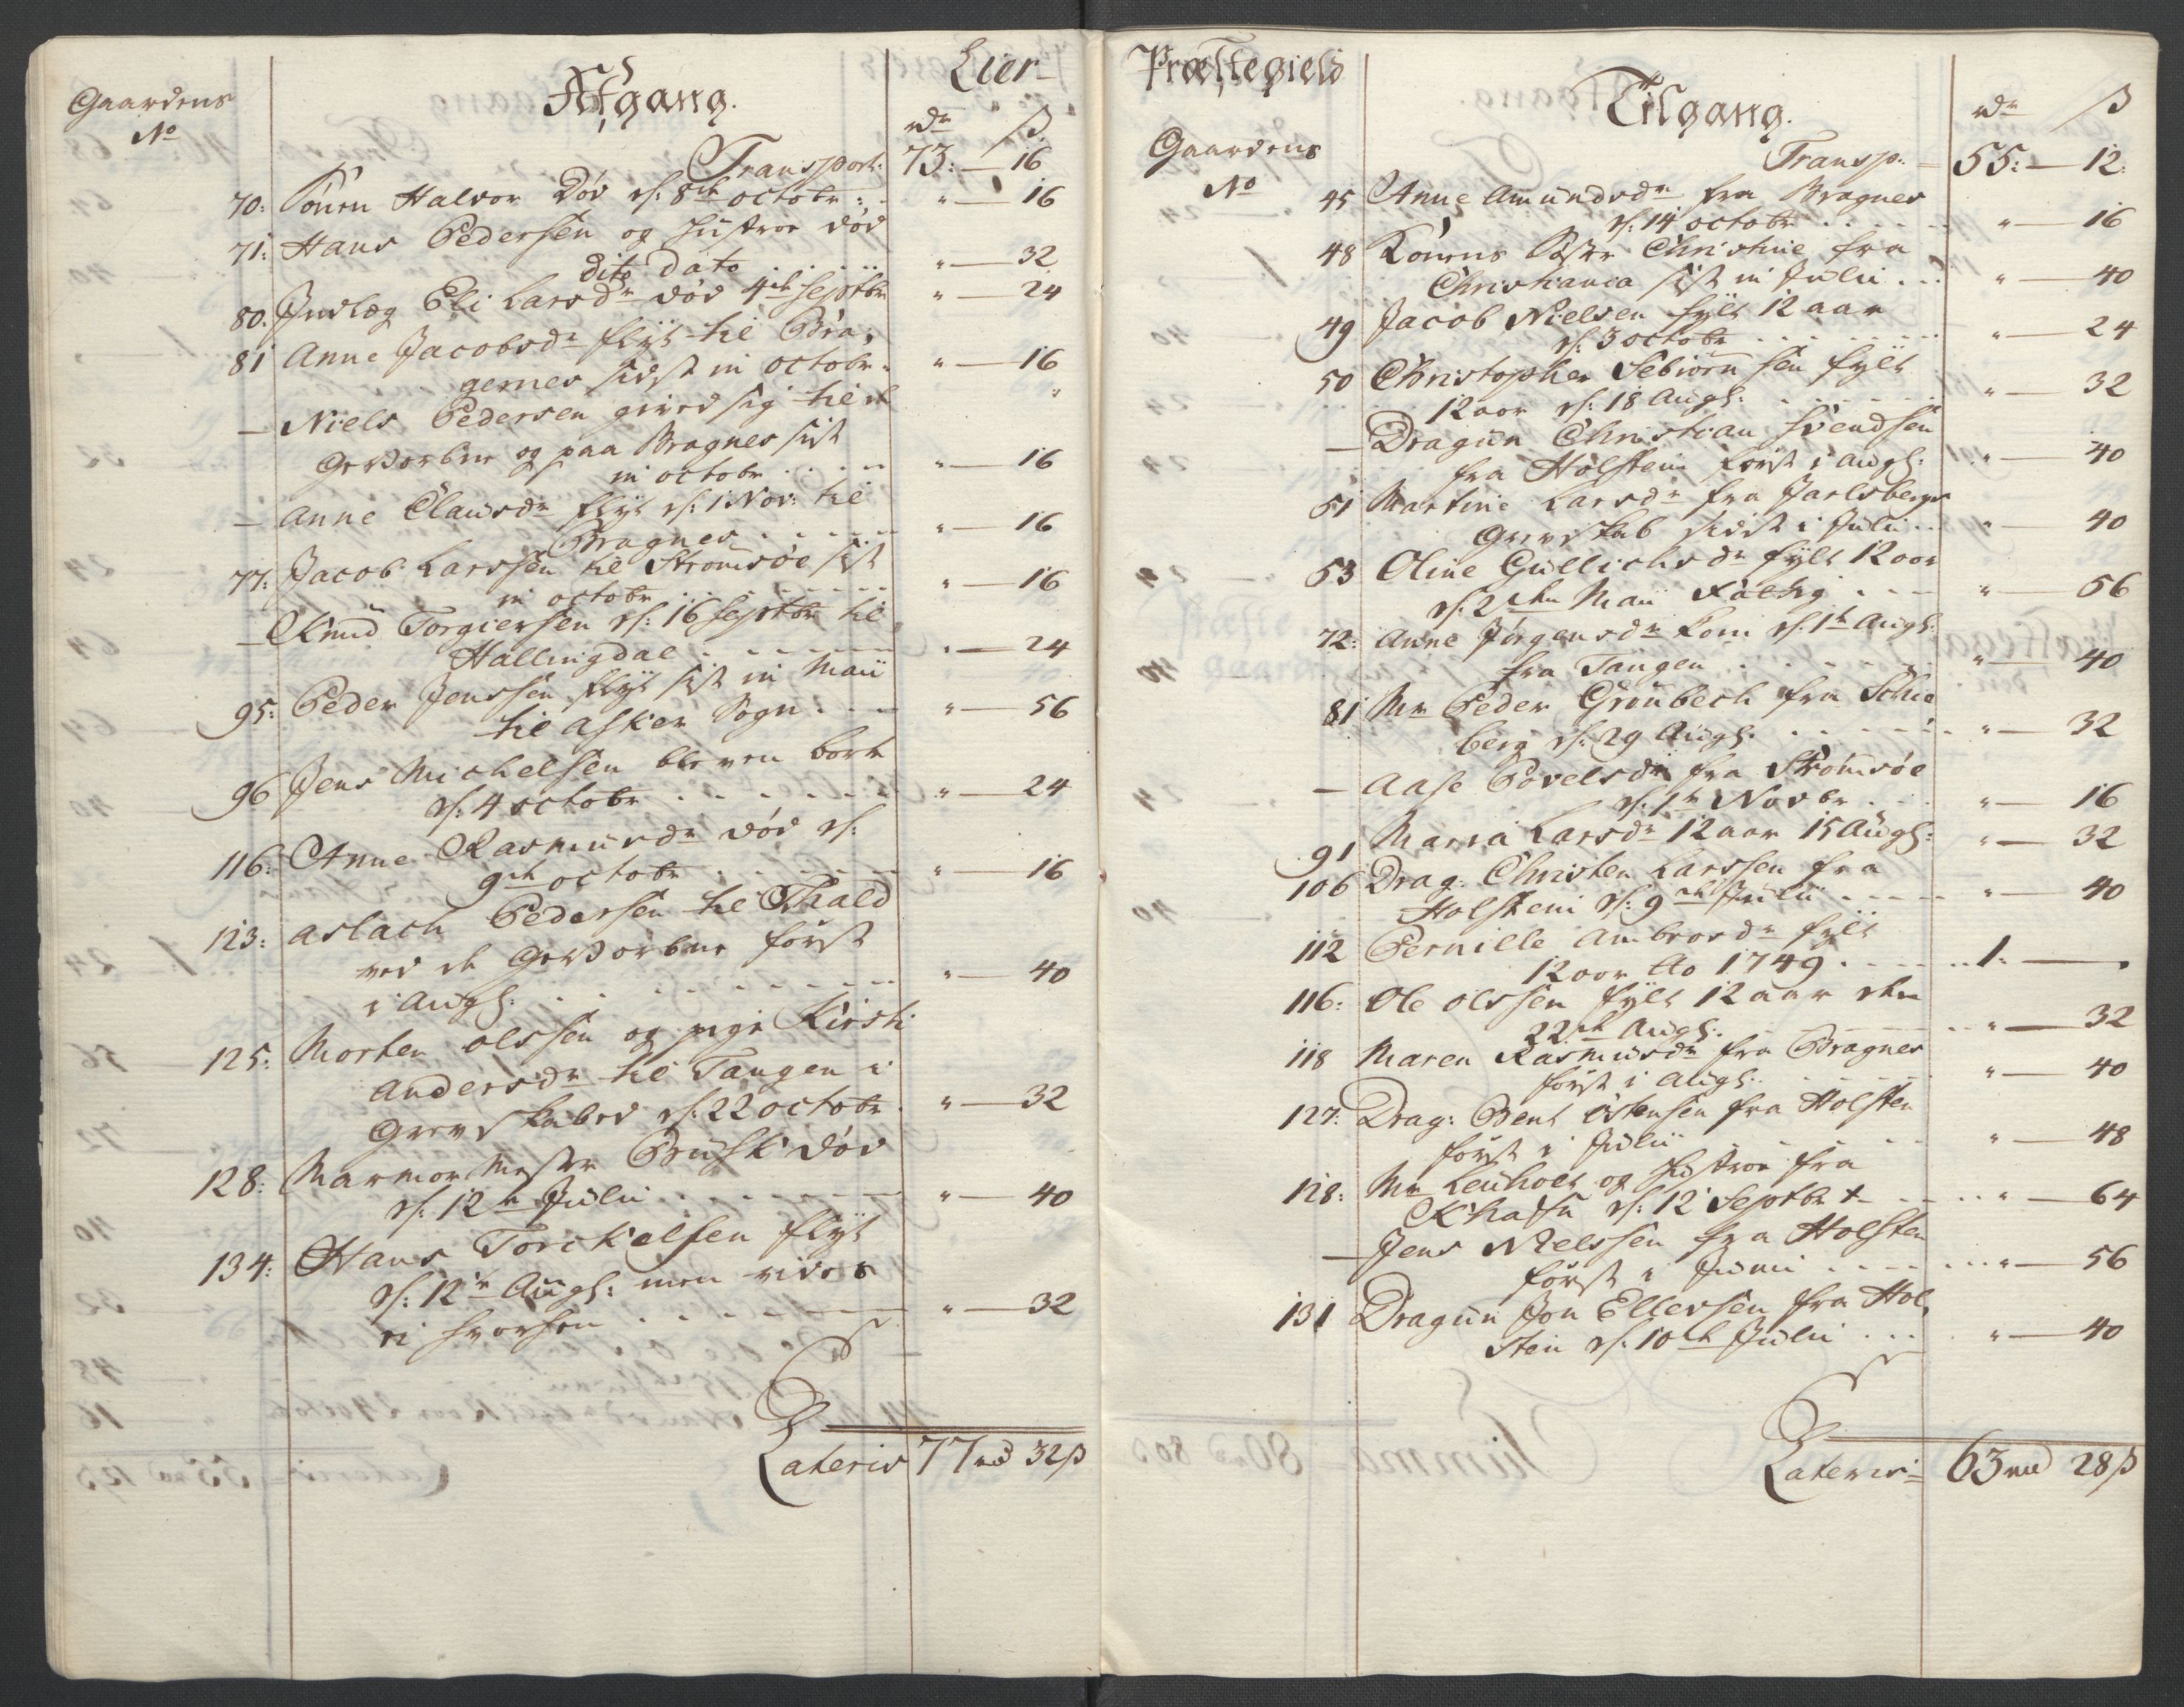 Gaardens
No
Afgang.
Lier-
rdr ß
Transport: 73: — 16
70: Sønn Halvor død d: 8de octobr: " — 16
71: Hans Pedersen og Hustroe død
dito dato . . . . . " — 32
80: Indlæg Eli Larsdr død 4de Septbr " — 24
81 Anne Jacobsdr flyt til Bra,
gernes sidst in octobr: " — 16
— Niels Pedersen gived sig til de "
GeWorbne og paa Bragnes sist
in octobr . . . . . " — 16
— Anne Clausdr flyt d: 1 Nov: til
Bragnes . . . . . " — 16
77: Jacob Larssen til Strømsøe sist
in octobr . . . . . " — 16
— Knud Torgiersen d: 16 Septbr til
Hallingdal . . . . . " — 24
95: Peder Jenssen flyt sist in Maii
til Asker Sogn . . . " — 56
96 Jens Michelsen bleven bort
d: 4 octobr . . . . . " — 24
116: Anne Rasmusdr død d:
9de octobr . . . . . " — 16
123: Aslach Pedersen til Fhald
ved de GeWorbne først
i Augs: . . . . . " — 40
125: Morten olssen og pige Kirsti
Andersdr til Tangen i
Grevskabed d: 22 octobr " — 32
128: Marmor Mester Brusk død
d: 12te Julii . . . . . " — 40
134: Hans Torckelsen flyt
d: 12te Augs: men vides
ei hvorhen . . . . . " — 32
Lateris 77 rd 32 ß
Præstegield
Tilgang.
Gaardens
No
rdr ß
Transp: 55: — 12:
45 Anne Amundsdr fra Bragnes
d: 14 octobr . . . . . " — 16
48 Konens Søster Christine fra
Christiania sist in Julii . . " — 40
49 Jacob Nielsen fylt 12 aar
d: 3 octobr . . . . . " — 24
50 Christopher Sebiørnsen fylt
12 aar d: 18 Augs: . . . . . " — 32
— Dragun Christian Svendsen
fra Holsten først i Augs: " — 40
51 Martine Larsdr fra Jarlsbergs
Grevskab sidst i Julii . . " — 40
53 Oline Gullichsdr fylt 12 aar
d: 2den Maii . . . " — 56
72: Anne Jørgensdr kom d: 1te Augs:
fra Tangen . . . . . " — 40
81 Mr Peder Grønbech fra Schie
berg d: 29 Augs: . . . . . " — 32
— Aase Povelsdr fra Strømsøe
d: 1te Novbr . . . " — 16
91 Maria Larsdr 12 aar 15 Augs: " — 32
106 Drag: Christen Larssen fra
Holsten d: 9de Julii . . . . " — 40
112 Pernille Ambrosdr fylt
12 aar Ao 1749 . . . . . 1: — "
116: Ole olssen fylt 12 aar den
22de Augs: . . . . . " — 32
118 Maren Rasmusdr fra Bragnes
først i Augs: . . . . . " — 40
127: Drag: Bent Østensen fra Holsten
først i Julii . . . . . " — 48
128: Mr Leuholt og Hustroe fra
d: 12 Septbr . . . . . " — 64
— Jens Nielssen fra Holsten
først i Junii . . . . . " — 56
131 Dragun Jon Ellersen fra Hol,
sten d: 10de Julii . . . . " — 40
Lateris 63 rd 28 ß